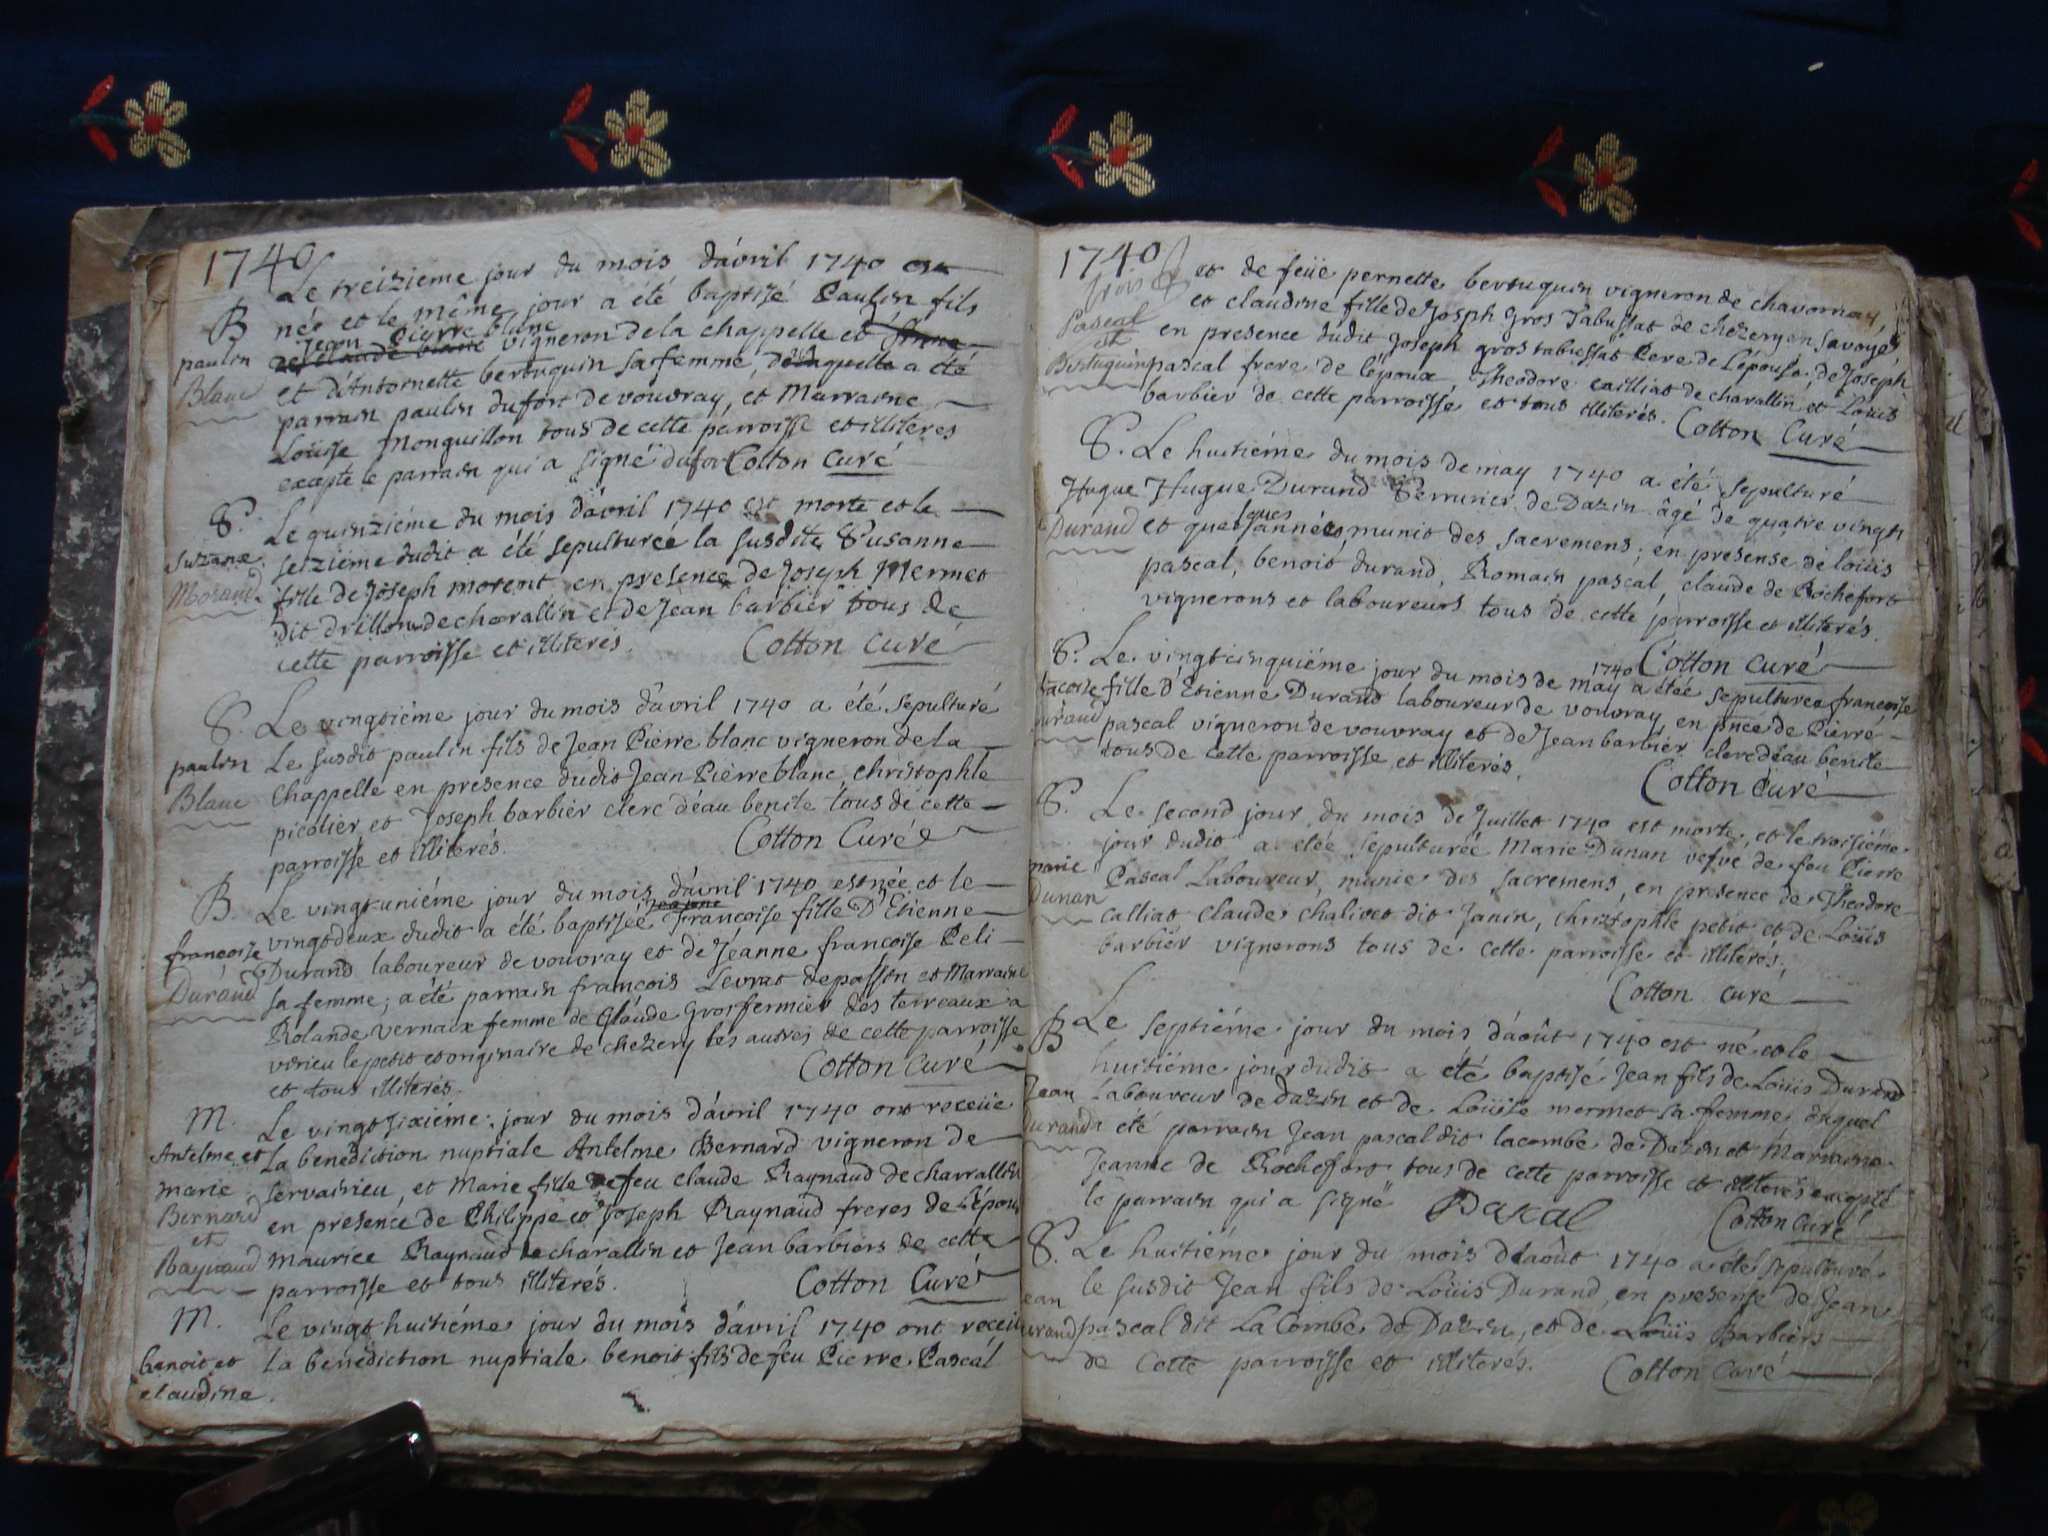 1740
Le treizieme jour du mois d'avril 1740 est
B né et le même jour a été baptisé Paulin fils
Jean Pierre blanc
paulin de claude blanc vigneron de la chappelle et d'Anne
Blanc et d'Antoinette bertuquin sa femme, duquel a été
parrain paulin dufort de vouvray, et Marraine
Loüise Monguillon tous de cette parroisse et illiterés
excepte le parrain qui a signé dufor Cotton Curé
S. Le quinziéme du mois d'avril 1740 est morte et le
Suzanne seiziéme dudit a été sepulturée la susdite Susanne
Morand fille de Joseph morent en presence de Joseph Mermet
dit drillon de charallin et de Jean barbier tous de
cette parroisse et illiterés. Cotton Curé
S. Le vingtiéme jour du mois d'avril 1740 a été sepulturé
paulin Le susdit paulin fils de Jean Pierre blanc vigneron de la
Blanc Chappelle en presence dudit Jean Pierre blanc, christophle
picolier, et Joseph barbier clerc d'eau benite tous de cette
parroisse et illiterés. Cotton Curé
B. Le vingt-uniéme jour du mois d'avril 1740 est née et le
françoise vingtdeux dudit a été baptisée Françoise fille D'Etienne
Durand Durand laboureur de vouvray et de Jeanne françoise Peli
sa femme; a été parrain françois Levrat de passin et Marraine
Rolande vernaix femme de Claude Gros fermier des terreaux a
virieu le petit et originaire de chezery les autres de cette parroisse
et tous illiterés. Cotton Curé
M. Le vingtsixiéme jour du mois d'avril 1740 ont receüe
Antelme et la benediction nuptiale Antelme Bernard vigneron de
marie Servairieu, et Marie fille de feu claude Raynaud de charrallin
Bernard en presence de Philippe et Joseph Raynaud freres de l'épouse
et
Raynaud Maurice Raynaud de charallin et Jean barbiers de cette
parroisse et tous illiterés. Cotton Curé
M. Le vingthuitiéme jour du mois d'avril 1740 ont receü
benoit et la benediction nuptiale benoit fils de feu Pierre Pascal
claudine.
1740
et de feüe pernette bertuquin vigneron de chavornay,
et claudine fille de Joseph Gros Tabussat de chezery en savoye,
Pascal en presence dudit Joseph gros tabussat Pere de l'épouse, de Joseph
et
Bertuquin pascal frere de l'époux, Theodore cailliat de charallin et Loüis
barbier de cette parroisse et tous illiterés. Cotton Curé
S. Le huitiéme du mois de may 1740 a été sepulturé
Hugue Hugue Durand Serrurier de Dazin âgé de quatre vingts
Durand et quelques années, munit des sacremens; en presense de loüis
pascal, benoit durand, Romain pascal, claude de Rochefort
vignerons et laboureurs tous de cette parroisse et illiterés.
Cotton Curé
S. Le vingtcinquiéme jour du mois de may 1740 a étée sepulturée françoise
fille d'Etienne Durand laboureur de vouvray en pnce de Pierre
durand pascal vigneron de vouvray et de Jean barbier clerc d'eau benite
tous de cette parroisse et illiterés. Cotton Curé
S. Le second jour du mois de Juillet 1740 est morte, et le troisiéme
jour dudit a étée sepulturée Marie Dunan vefve de feu Pierre
marie Pascal Laboureur, munie des sacremens, en presence de Theodore
Dunan Calliat claude chalivet dit Janin, christophle petit et de Loüis
barbier vignerons tous de cette parroisse et illiterés.
Cotton curé
B Le septiéme jour du mois d'août 1740 est né et le
huitiéme jour dudit a été baptisé Jean fils de Loüis Durand
Jean Laboureur de dazin et de Loüise mermet sa femme duquel
durand a été parrain Jean pascal dit lacombe de Dazin et Marraine
Jeanne de Rochefort tous de cette parroisse et illiterés excepté
le parrain qui a signé Paxcal Cotton Curé
S. Le huitiéme jour du mois d'août 1740 a été sepulturé
Jean le susdit Jean fils de Loüis Durand, en presense de Jean
durand pascal dit La Combe de Dazin, et de Loüis Barbiers
de Cette parroisse et illiterés. Cotton Curé